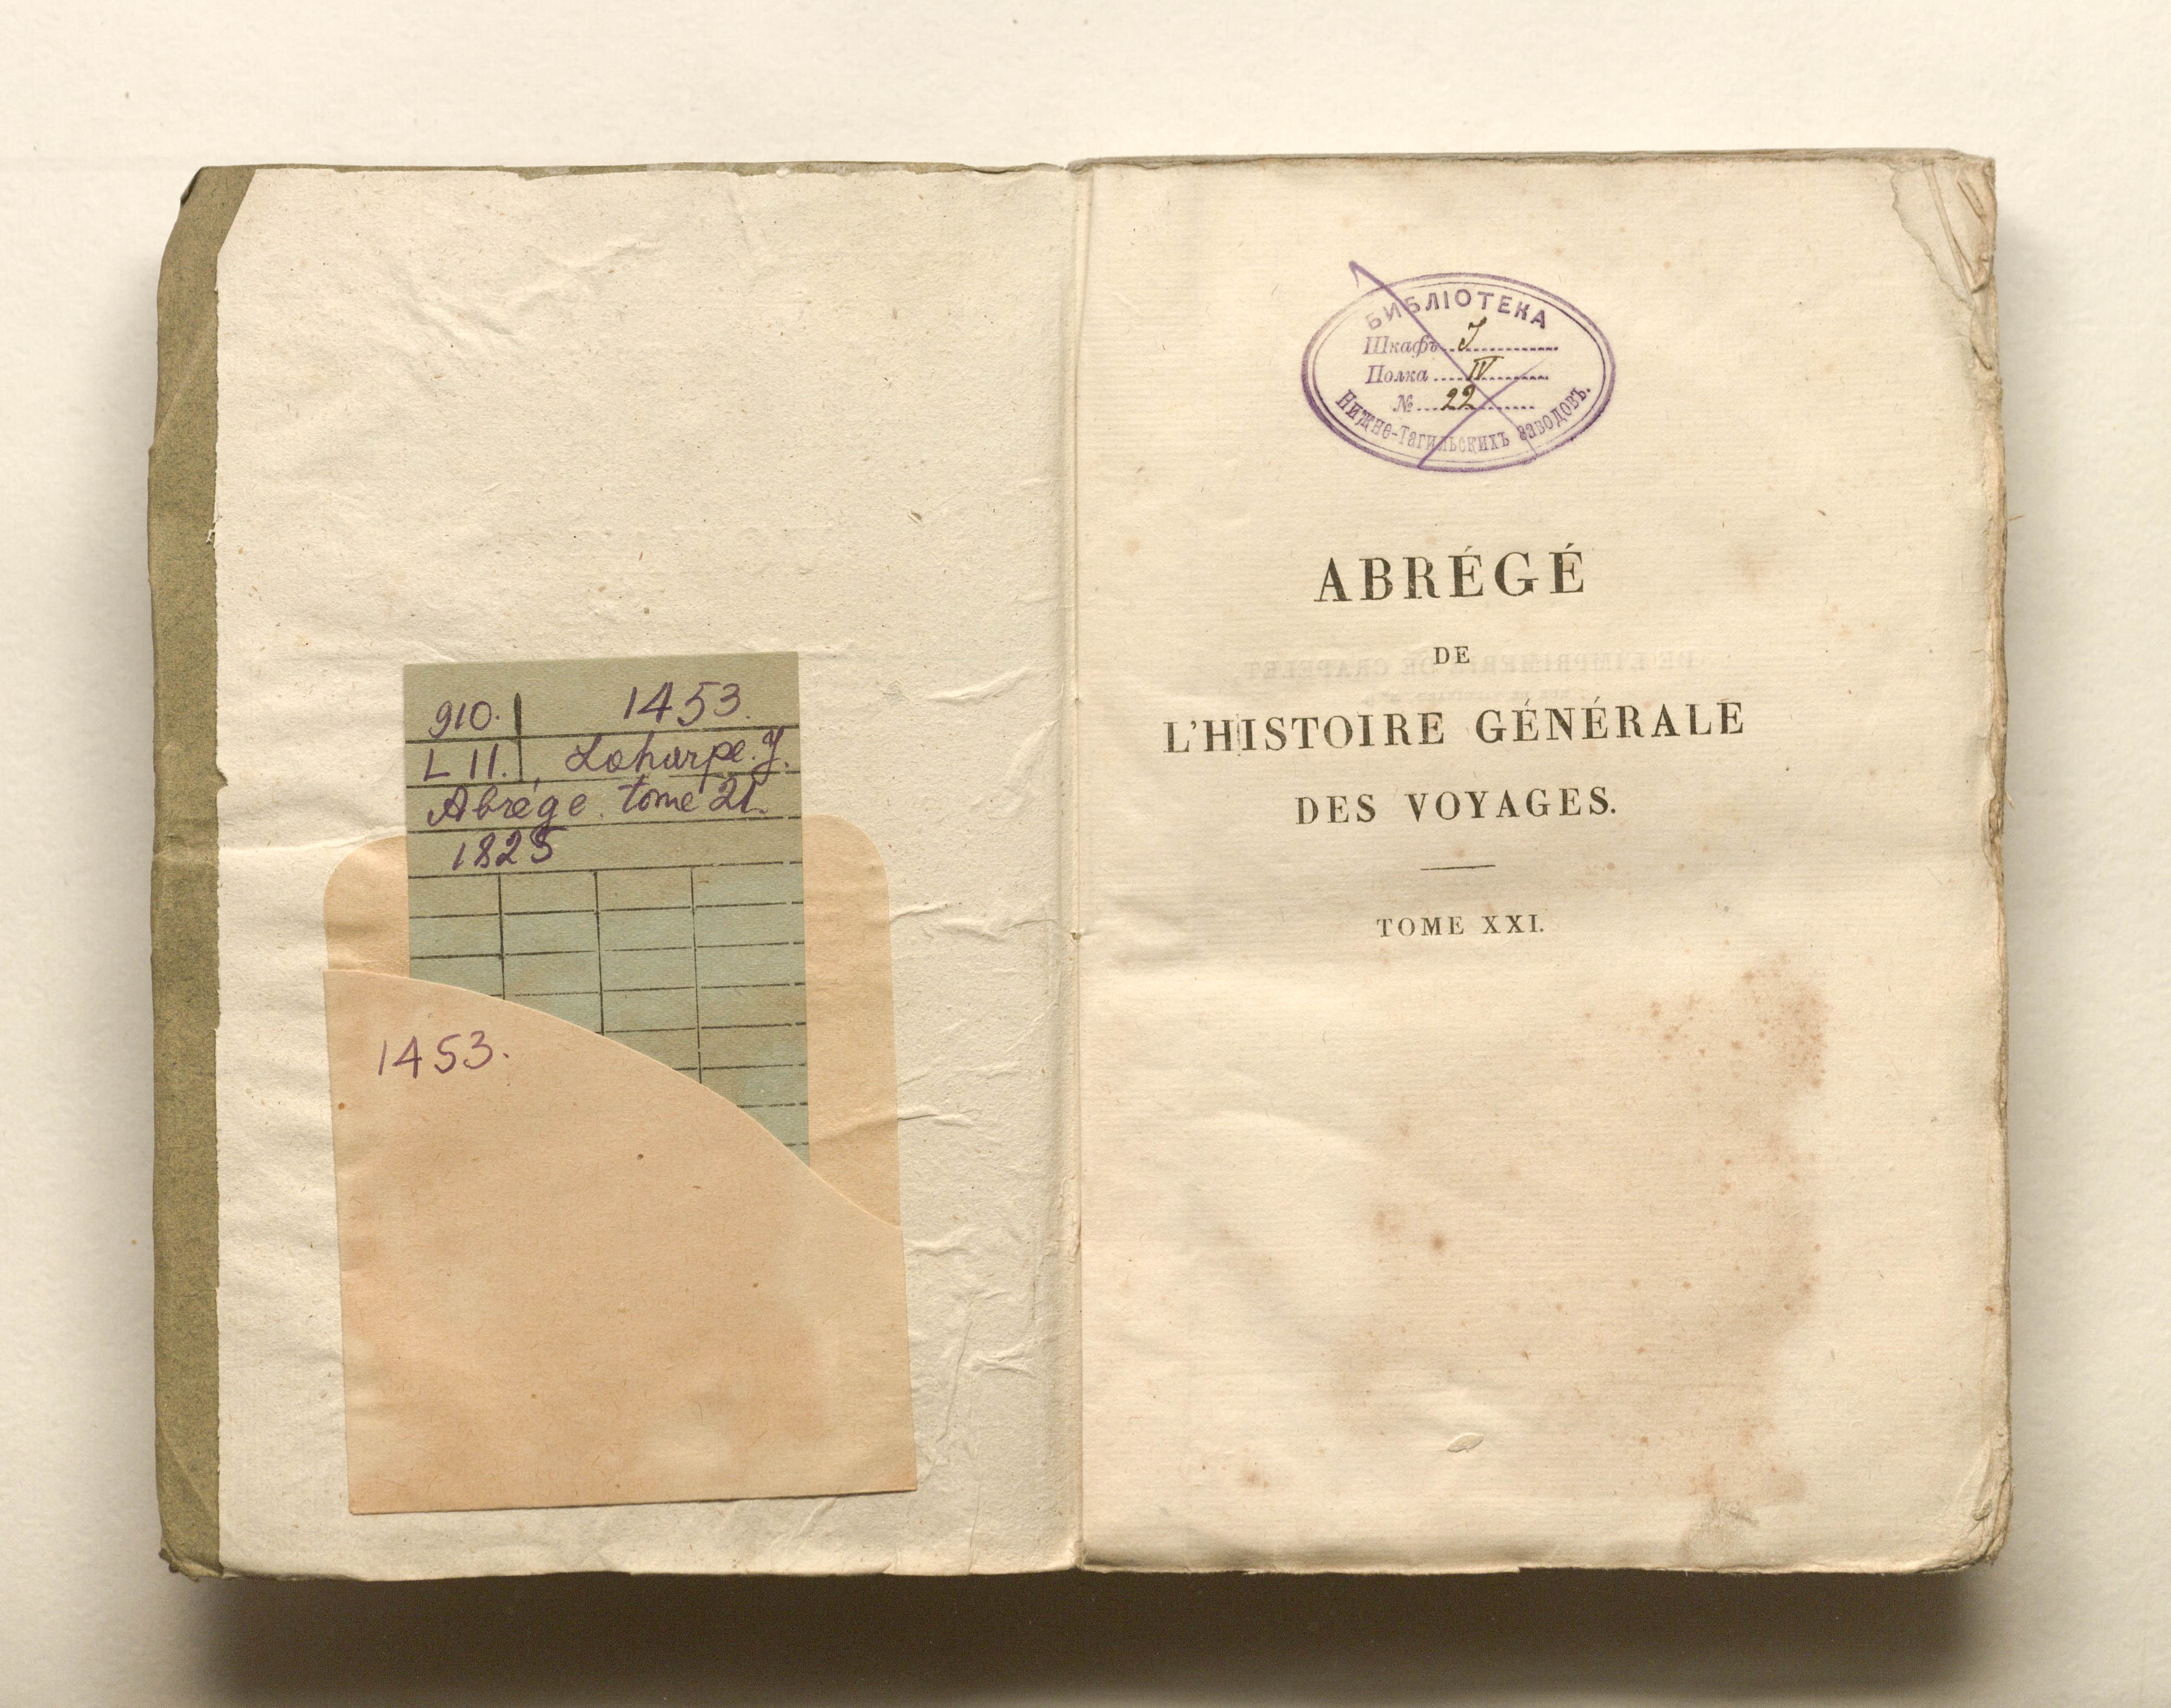 910. 1453.
L 11. Laharpe. J.
Abrége. tome 21.
1825
1453.
БИБЛІОТЕКА
Шкафъ I
Полка IV
№ 22
Нижне-Тагильскихъ Заводовъ.
ABRÉGÉ
DE
L'HISTOIRE GÉNÉRALE
DES VOYAGES.
TOME XXI.